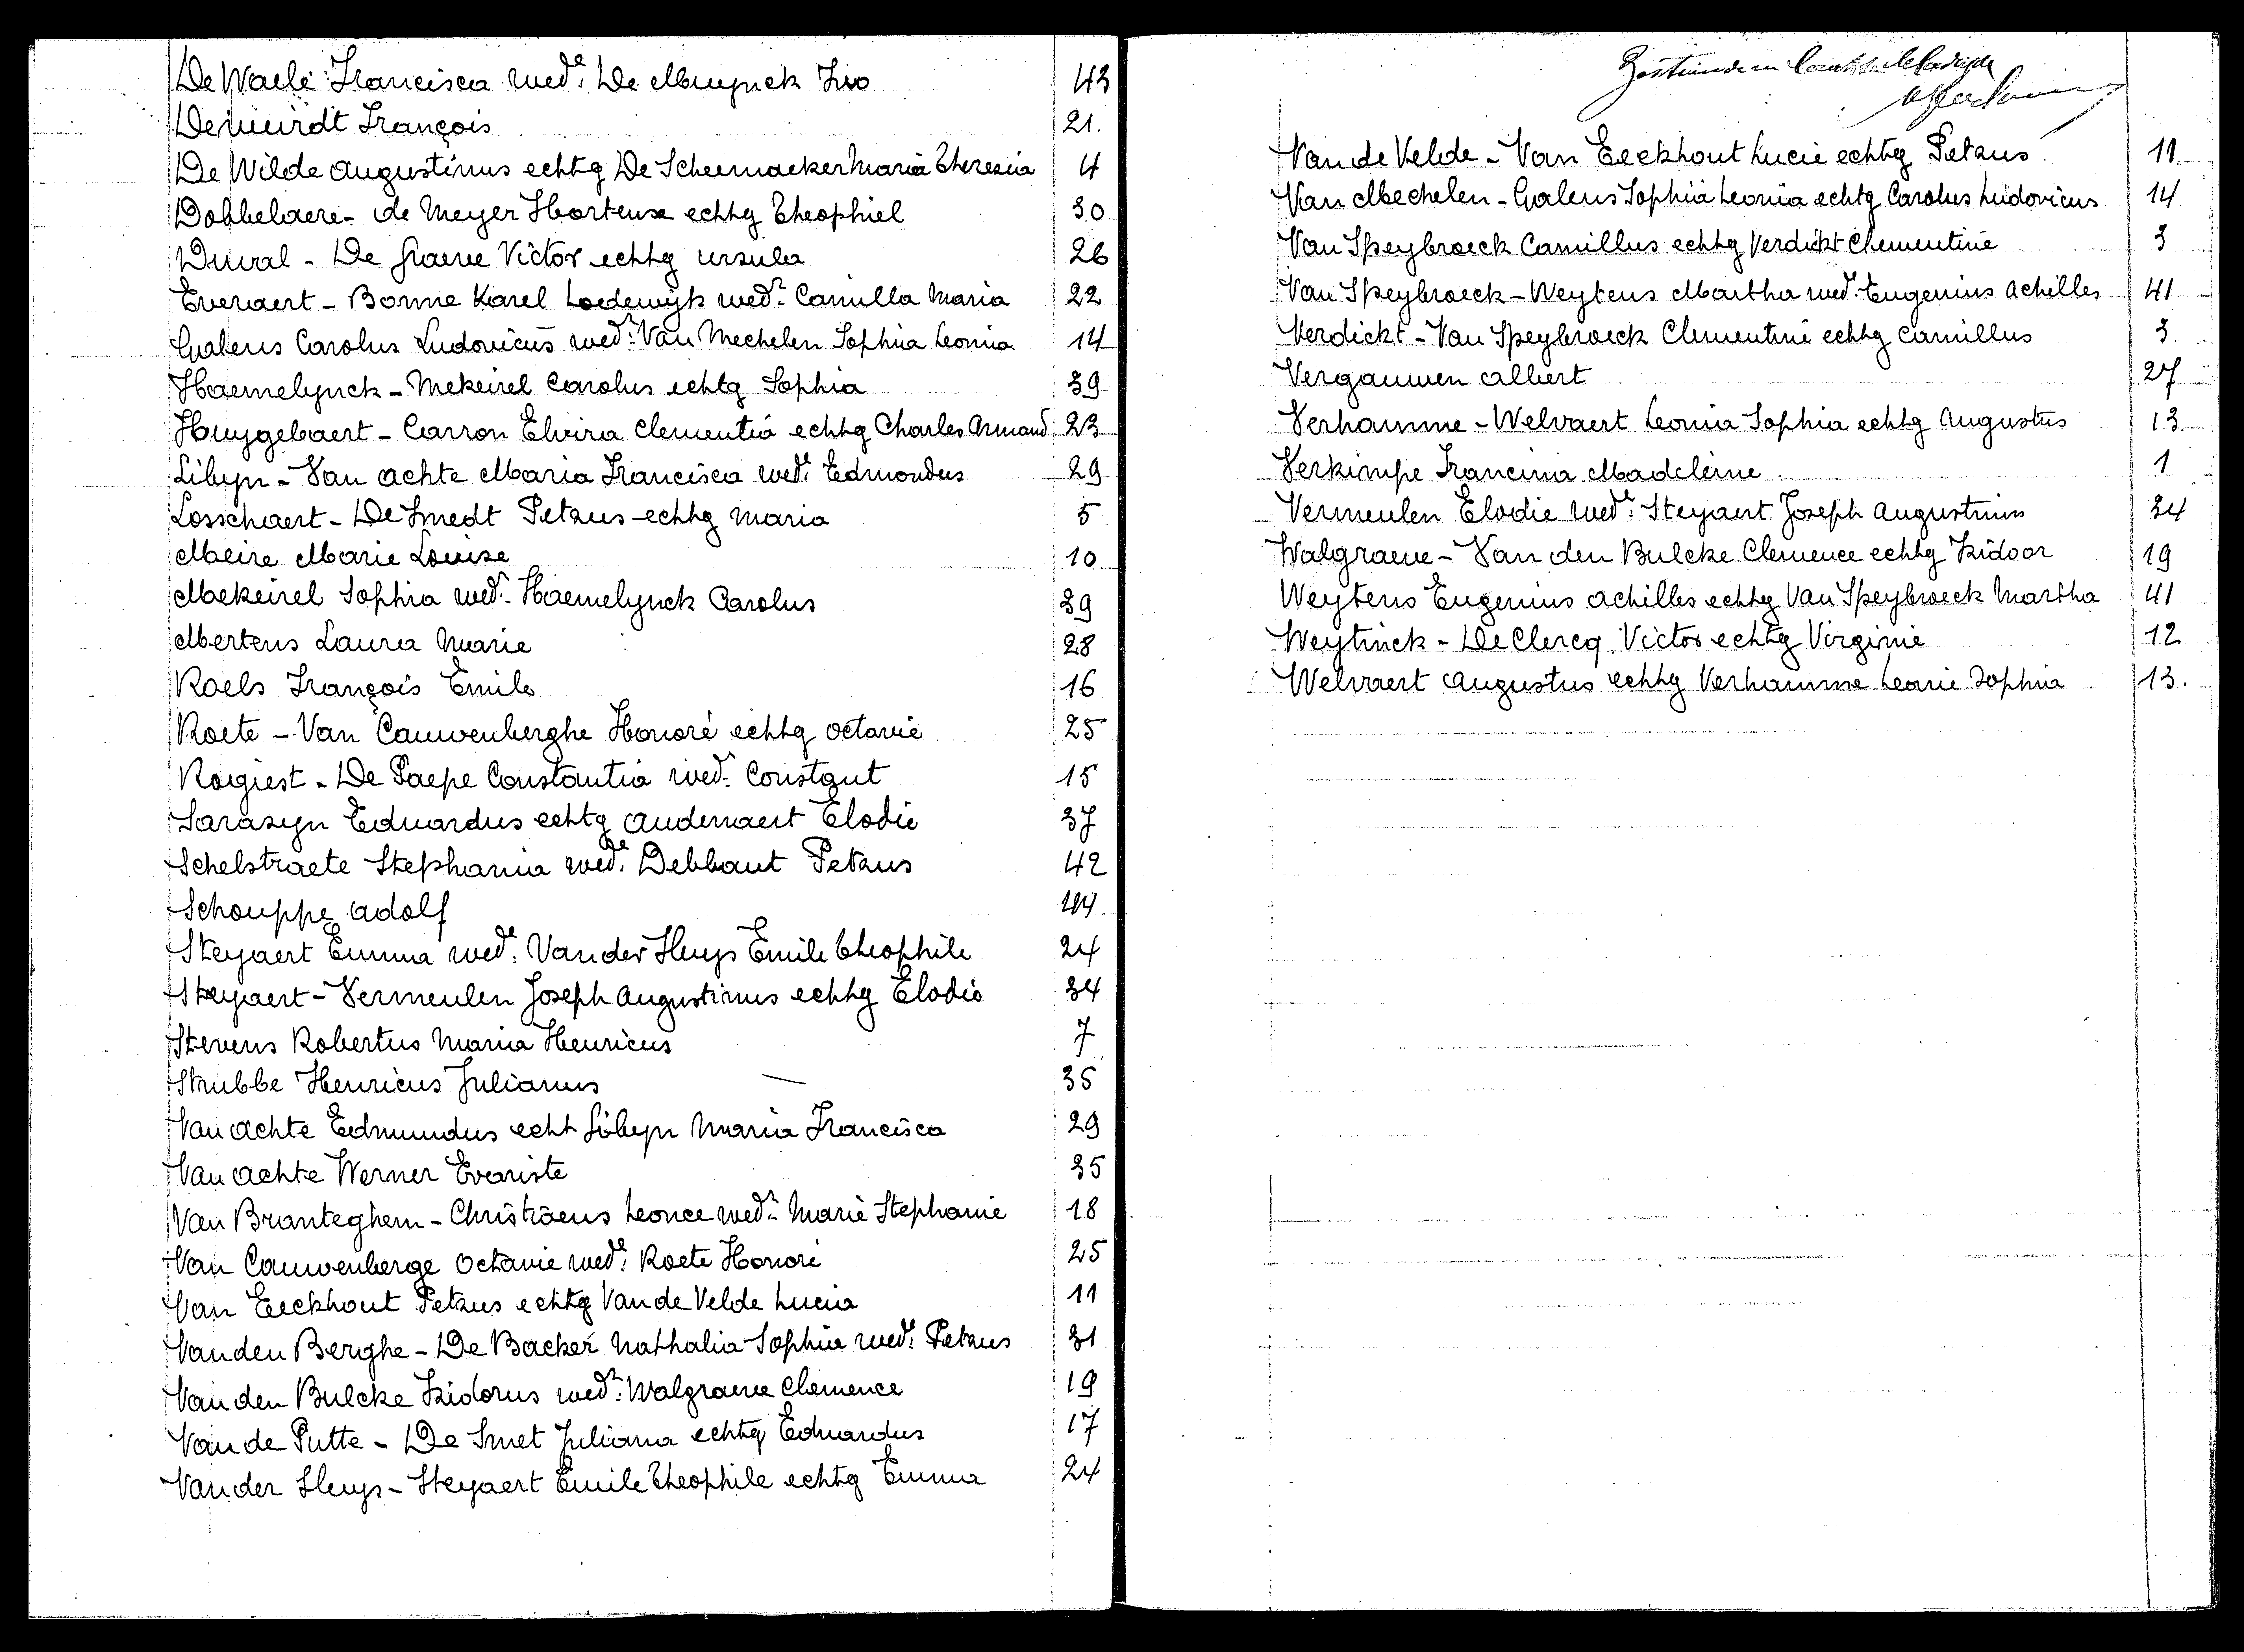 De Waele Francisca wed.e De Muynck Ivo 43
Deweirdt François 21.
De Wilde Augustinus echtg De Scheemaeker Maria Theresia 4
Dobbelaere - de Meyer Hortense echtg Theophiel 30
Duval - De Graeve Victor echtg Ursula 26
Everaert - Bonne Karel Lodewijk wed.r Camilla Maria 22
Galens Carolus Ludovicus wed.r Van Mechelen Sophia Leonia 14
Haemelynck - Mekeirel Carolus echtg Sophia 39
Huygebaert - Carron Elvira Clementia echtg Charles Armand 23
Libyn - Van Achte Maria Francisca wed.e Edmondus 29
Losschaert - De Smedt Petrus echtg Maria 5
Meire Marie Louise 10
Mekeirel Sophia wed.e Haemelynck Carolus 39
Mertens Laura Marie 28
Roels François Emile 16
Roete - Van Cauwenberghe Honoré echtg Octavie 25
Rogiest - De Paepe Constantia wed.e Constant 15
Sarazyn Eduardus echtg Audenaert Elodie 37
Schelstraete Stephania wed.e Debbaut Petrus 42
Schouppe Adolf 44
Steyaert Emma wed.e Van der Sluys Emile Theophile 24
Steyaert - Vermeulen Joseph Augustinus echtg Elodie 34
Stevens Robertus Maria Henricus 7
Strubbe Henricus Julianus — 35
Van Achte Edmundus echt Libyn Maria Francisca 29
Van Achte Werner Evariste 35
Van Branteghem - Christiaens Leonce wed.r Marie Stephanie 18
Van Cauwenberge Octavie wed.e Roete Honoré 25
Van Eeckhout Petrus echtg Van de Velde Lucia 11
Van den Berghe - De Backer Nathalia Sophia wed.e Petrus 31
Van den Bulcke Isidorus wed.r Walgraeve Clemence 19
Van de Putte - De Smet Juliana echtg Eduardus 17
Van der Sluys - Steyaert Emile Theophile echtg Emma 24
Van de Velde - Van Eeckhout Lucie echtg Petrus 11
Van Mechelen - Galens Sophia Leonia echtg Carolus Ludovicus 14
Van Speybroeck Camillus echtg Verdickt Clementine 3
Van Speybroeck - Weytens Martha wed.e Eugenius Achilles 41
Verdickt - Van Speybroeck Clementine echtg Camillus 3
Vergauwen Albert 27
Verhamme - Welvaert Leonia Sophia echtg Augustus 13
Verkimpe Francina Madeleine 1
Vermeulen Elodie wed.e Steyaert Joseph Augustinus 34
Walgraeve - Van den Bulcke Clemence echtg Isidoor 19
Weytens Eugenius Achilles echtg Van Speybroeck Martha 41
Weytinck - De Clercq Victor echtg Virginie 12
Welvaert Augustus echtg Verhamme Leonie Sophia 13.